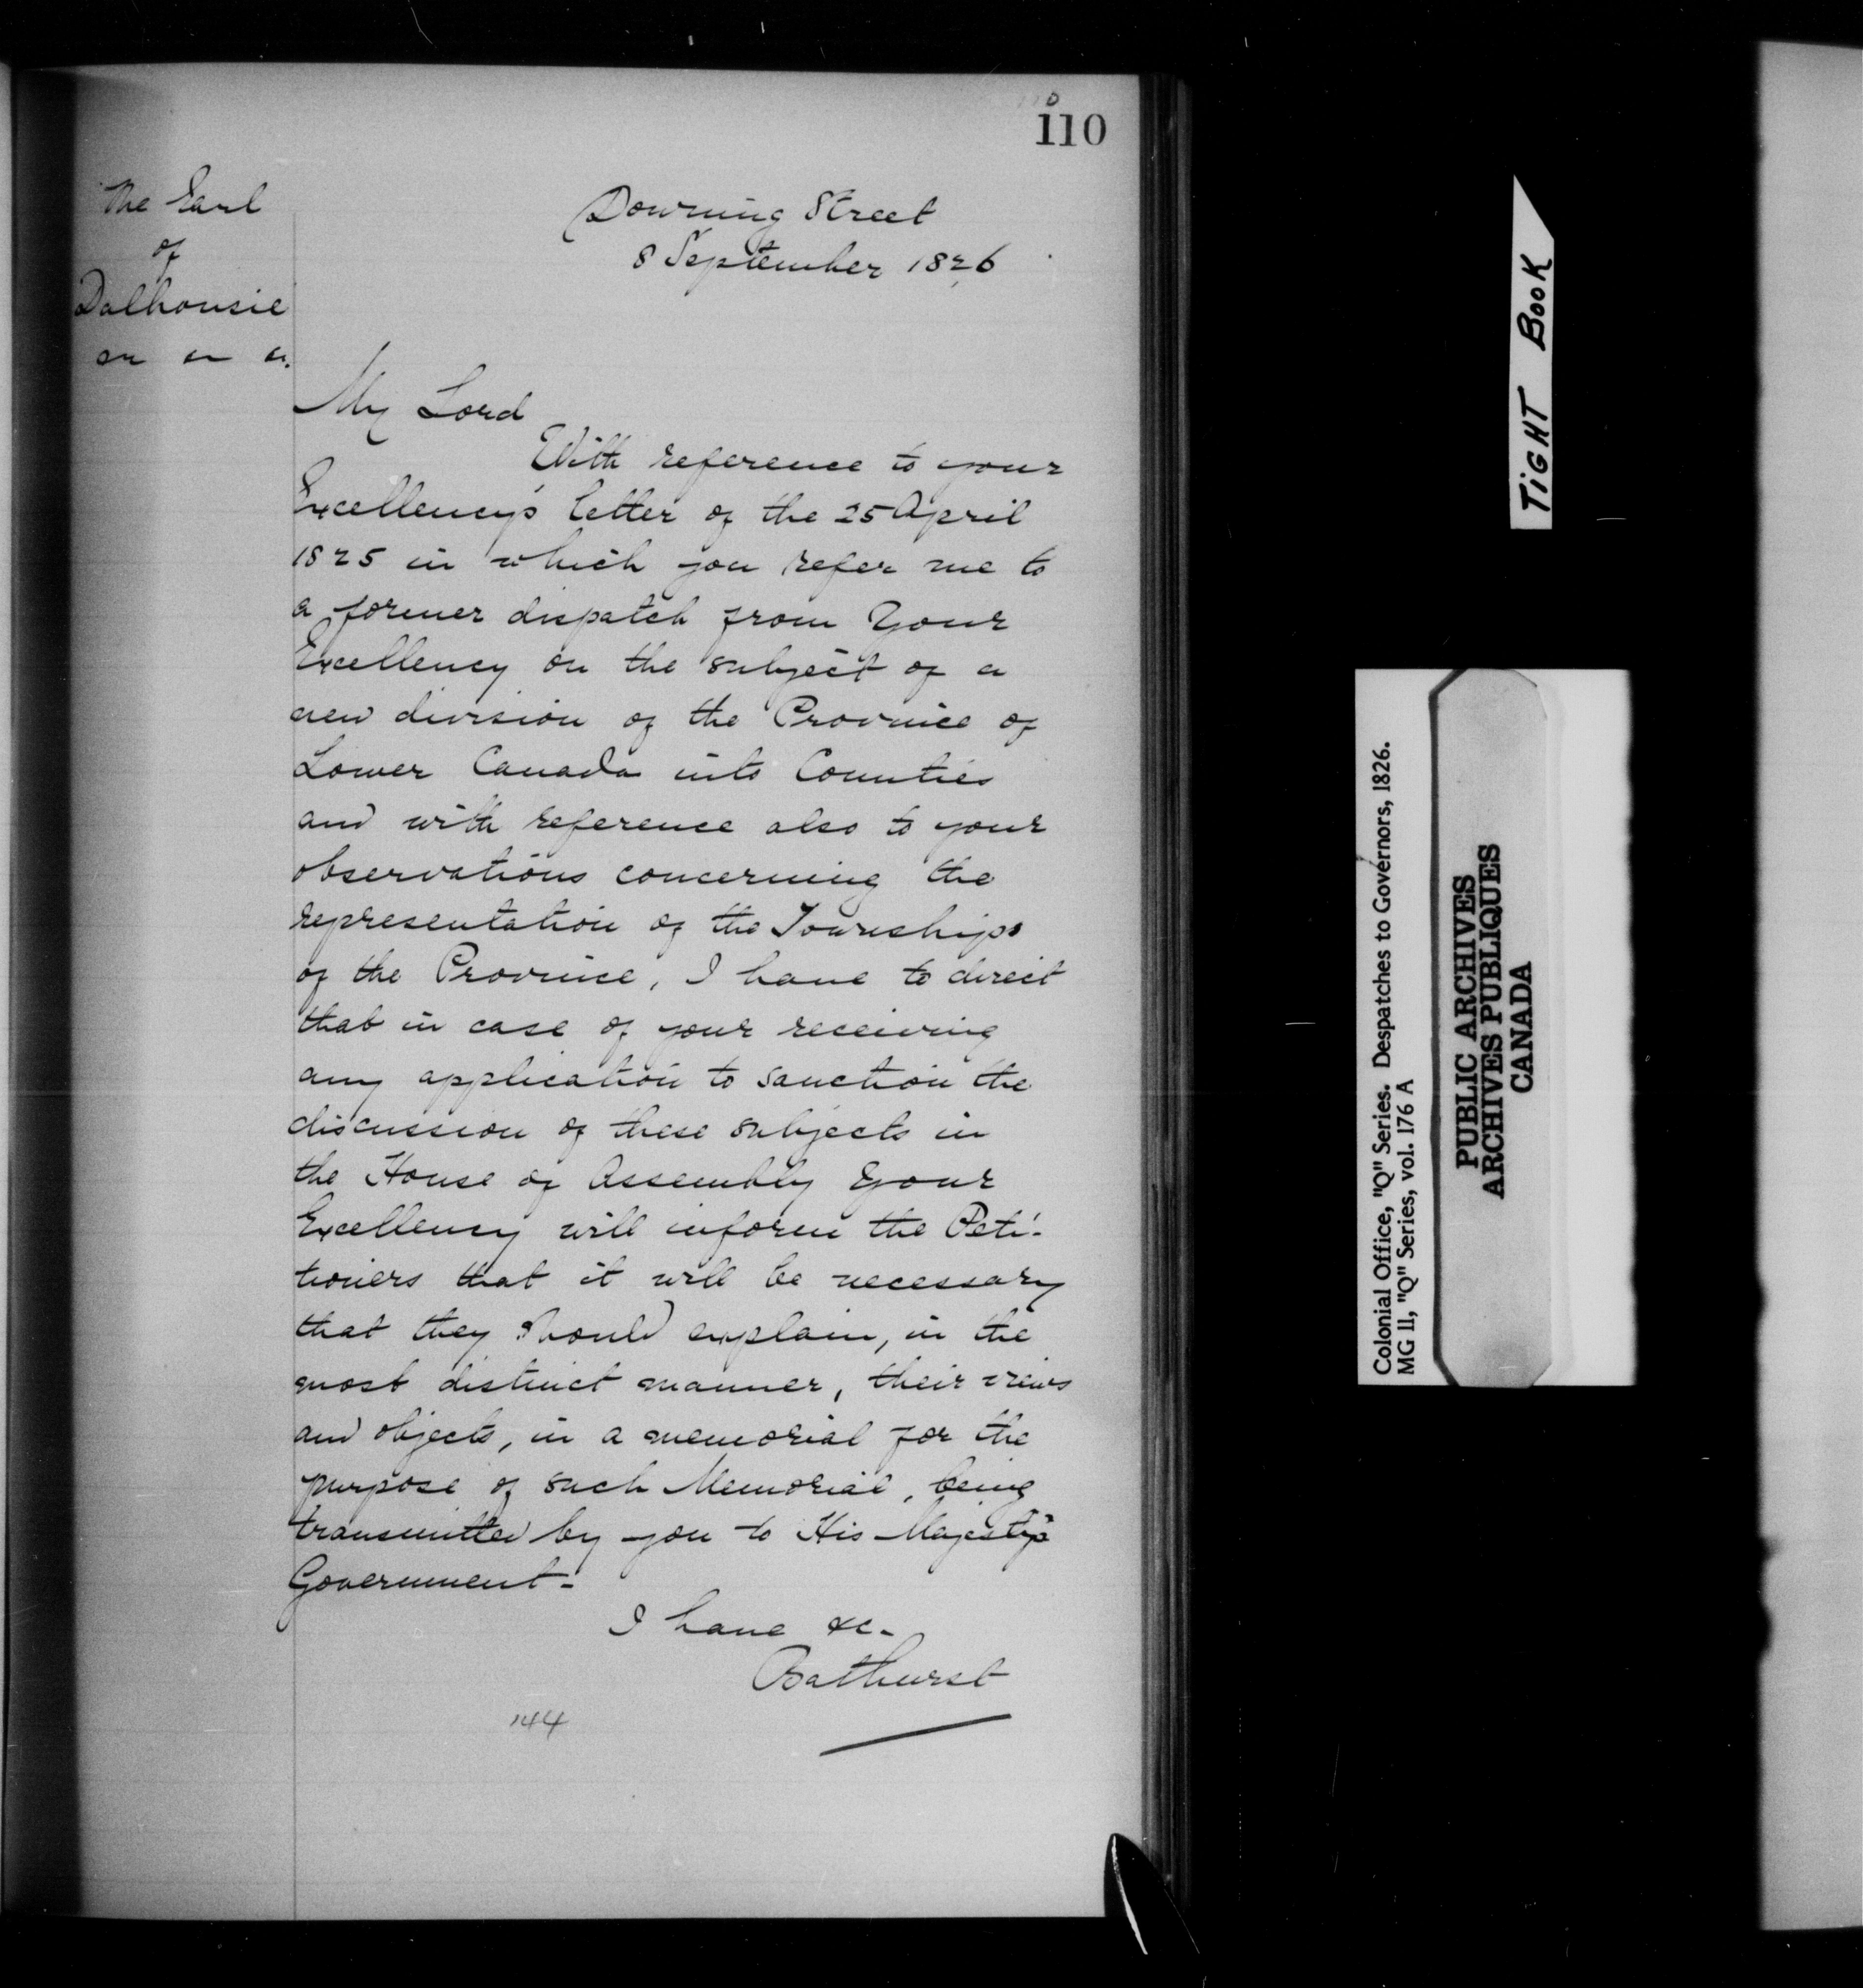 110
The Earl
of
Dalhousie
Downing Street
8 September 1826
My Lord
With reference to your
Excellency's letter of the 25 April
1825 in which you refer me to
a former dispatch from Your
Excellency on the subject of a
new division of the Province of
Lower Canada into Counties
and with reference also to your
observations concerning the
representation of the Townships
of the Province, I have to direct
that in case of your receiving
any application to sanction the
discussion of these subjects in
the House of Assembly Your
Excellency will inform the Peti-
tioners that it will be necessary
that they should explain, in the
most distinct manner, their views
and objects, in a memorial for the
purpose of such Memorial, being
transmitted by you to His Majesty's
Government-
I have &c-
Bathurst
144
TIGHT BOOK
Colonial Office, "Q" Series. Despatches to Governors, 1826.
MG 11, "Q" Series, vol. 176 A
PUBLIC ARCHIVES
ARCHIVES PUBLIQUES
CANADA